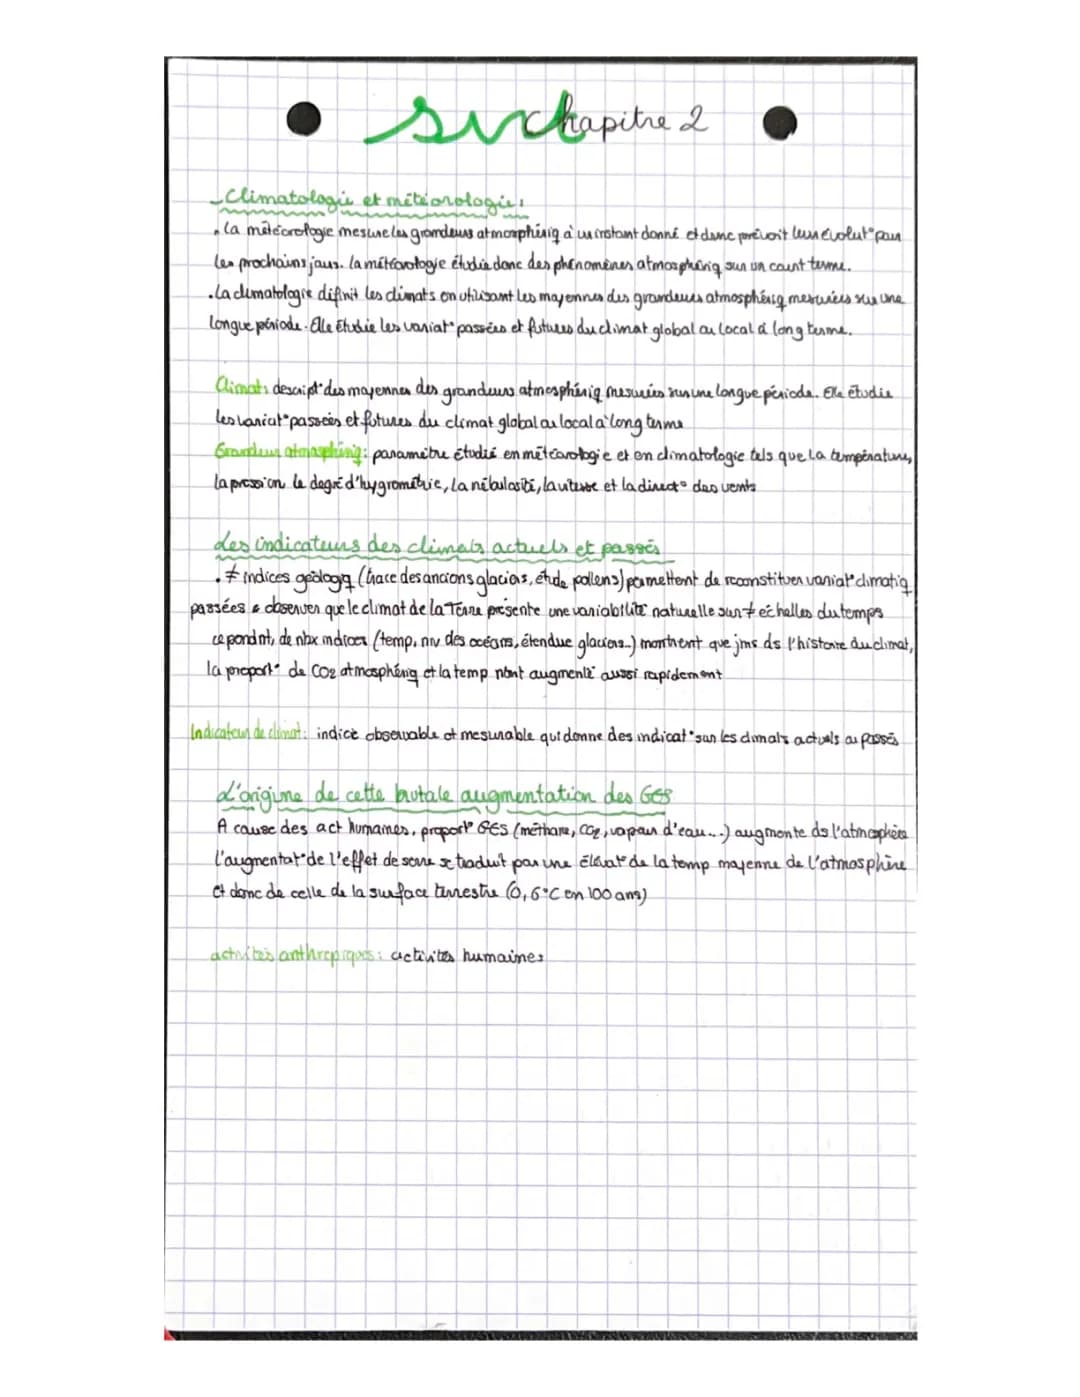 svt chapitre 2
Climatologie et météorologie:
. La météorologie mesure les grandeurs atmosphériq à un instant donné et donc prévoit leur évolut° pour
les prochains jours. la météorologie étudie donc des phénomènes atmosphériq sur un court terme.
. La climatologie définit les climats en utilisant les moyennes des grandeurs atmosphériq mesurées sur une
longue période. Elle étudie les variat° passées et futures du climat global ou local à long terme.
Climat: descript° des moyennes des grandeurs atmosphériq mesurées sur une longue période. Elle étudie
les variat° passées et futures du climat global ou local à long terme
Grandeur atmosphériq: paramètre étudié en météorologie et en climatologie tels que la température,
la pression le degré d'hygrométrie, la nébulosité, la vitesse et la direct° des vents
Les indicateurs des climats actuels et passés
. ≠ indices géologiq (trace des anciens glaciers, étude pollens) permettent de reconstituer variat° climatiq
passées & observer que le climat de la Terre présente une variabilité naturelle sur ≠ échelles du temps
cependnt, de nbx indices (temp, niv des océans, étendue glaciers..) montrent que jms ds l'histoire du climat,
la proport° de CO2 atmosphériq et la temp n'ont augmenté aussi rapidement
Indicateur de climat: indice observable et mesurable qui donne des indicat° sur les climats actuels ou passés
L'origine de cette brutale augmentation des GES
A cause des act humaines, proport° GES (méthane, CO2, vapeur d'eau...) augmente ds l'atmosphère
l'augmentat° de l'effet de serre se traduit par une élévat° de la temp moyenne de l'atmosphère
et donc de celle de la surface terrestre (0,6°C en 100 ans)
activités anthropiques: activités humaines